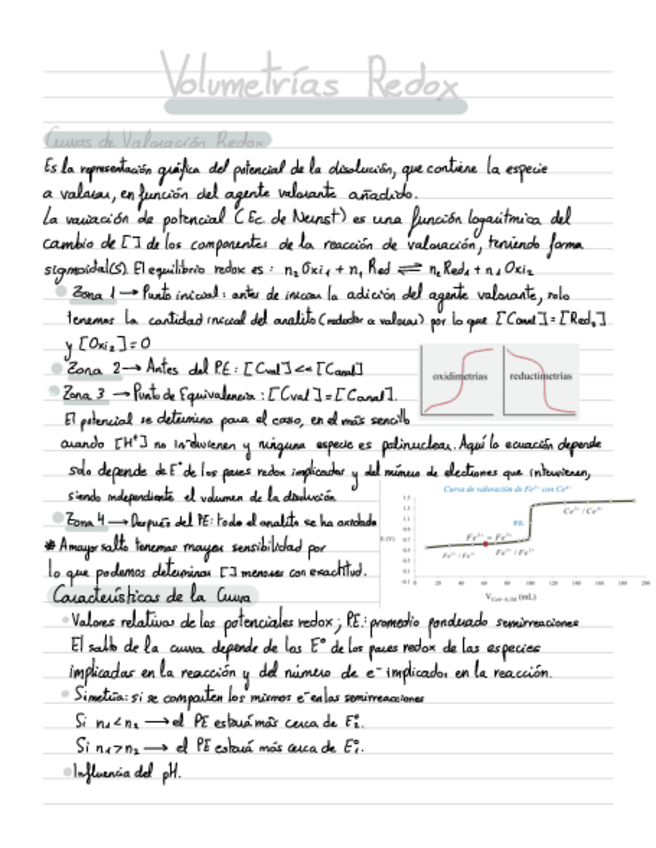 Volumetrías Redox
Curvas de Valoración Redox
Es la representación gráfica del potencial de la disolución, que contiene la especie
a valorar, en función del agente valorante añadido.
La variación de potencial (Ec. de Nernst) es una función logarítmica del
cambio de [] de los componentes de la reacción de valoración, teniendo forma
sigmoidal(S). El equilibrio redox es: n₂Oxi₁ + n₁ Red ⇌ n₂Red₁ + n₁Oxi₂
Zona 1 → Punto inicial: antes de iniciar la adición del agente valorante, solo
tenemos la cantidad inicial del analito (reductor a valorar) por lo que [Canal] = [Red₂]
y [Oxi₂] = 0
Zona 2 → Antes del PE: [Cval] << [Canal]
Zona 3 → Punto de Equivalencia: [Cval] = [Canal].
oxidimetrías
reductimetrías
El potencial se determina para el caso, en el más sencillo
cuando [H⁺] no intervienen y ninguna especie es polinuclear. Aquí la ecuación depende
solo depende de E° de los pares redox implicados y del número de electrones que intervienen,
siendo independiente el volumen de la disolución.
Zona 4 → Después del PE: todo el analito se ha oxidado
* A mayor salto tenemos mayor sensibilidad por
lo que podemos determinar [] menores con exactitud.
Curva de valoración de Fe²⁺ con Ce⁴⁺
E (V)
1.5
1.3
1.1
0.9
0.7
0.5
0.3
0.1
-0.1
P.E.
Ce³⁺ / Ce⁴⁺
Fe³⁺ = Fe²⁺
Fe²⁺ / Fe³⁺
Fe³⁺ / Fe²⁺
0 20 40 60 80 100 120 140 160 180 200
(mL)
Características de la Curva
Valores relativos de los potenciales redox; P.E.: promedio ponderado semirreaciones
El salto de la curva depende de los E° de los pares redox de las especies
implicadas en la reacción y del número de e⁻ implicados en la reacción.
Simetría: si se comparten los mismos e⁻ en las semirreacciones
Si n₁ < n₂ → el PE estará más cerca de E₂°.
Si n₁ > n₂ → el PE estará más cerca de E₁°.
Influencia del pH.